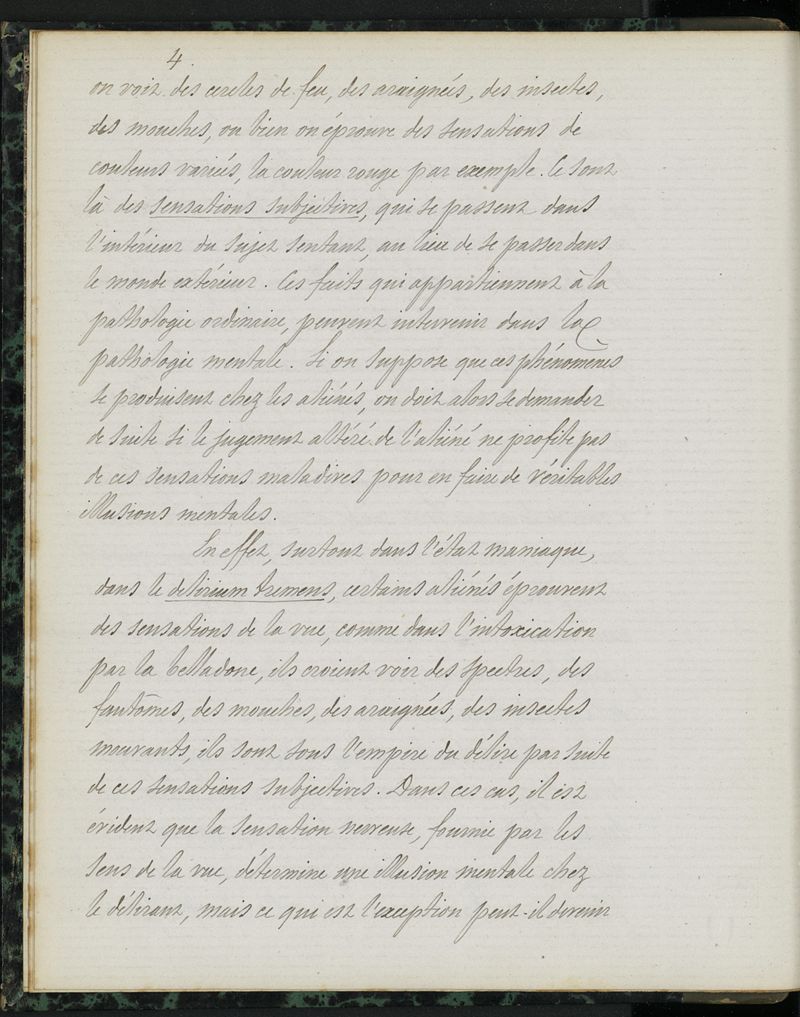 4
on voit des cercles de feu, des araignées, des insectes,
des mouches, ou bien on éprouve des sensations de
couleurs variées, la couleur rouge par exemple. Ce sont
là des sensations subjectives, qui se passent dans
l'intérieur du sujet sentant, au lieu de se passer dans
le monde extérieur. Ces faits qui appartiennent à la
pathologie ordinaire, peuvent intervenir dans la
pathologie mentale. Si on suppose que ces phénomènes
se produisent chez les aliénés, on doit alors se demander
de suite si le jugement altéré de l'aliéné ne profite pas
de ces sensations maladives pour en faire de véritables
illusions mentales.
En effet, surtout dans l'état maniaque,
dans le delirium tremens, certains aliénés éprouvent
des sensations de la vue, comme dans l'intoxication
par la belladone, ils croient voir des spectres, des
fantômes, des mouches, des araignées, des insectes
mouvants, ils sont sous l'empire du délire par suite
de ces sensations subjectives. Dans ces cas, il est
évident que la sensation nerveuse, fournie par les
sens de la vue, détermine une illusion mentale chez
le délirant, mais ce qui est l'exception peut-il devenir